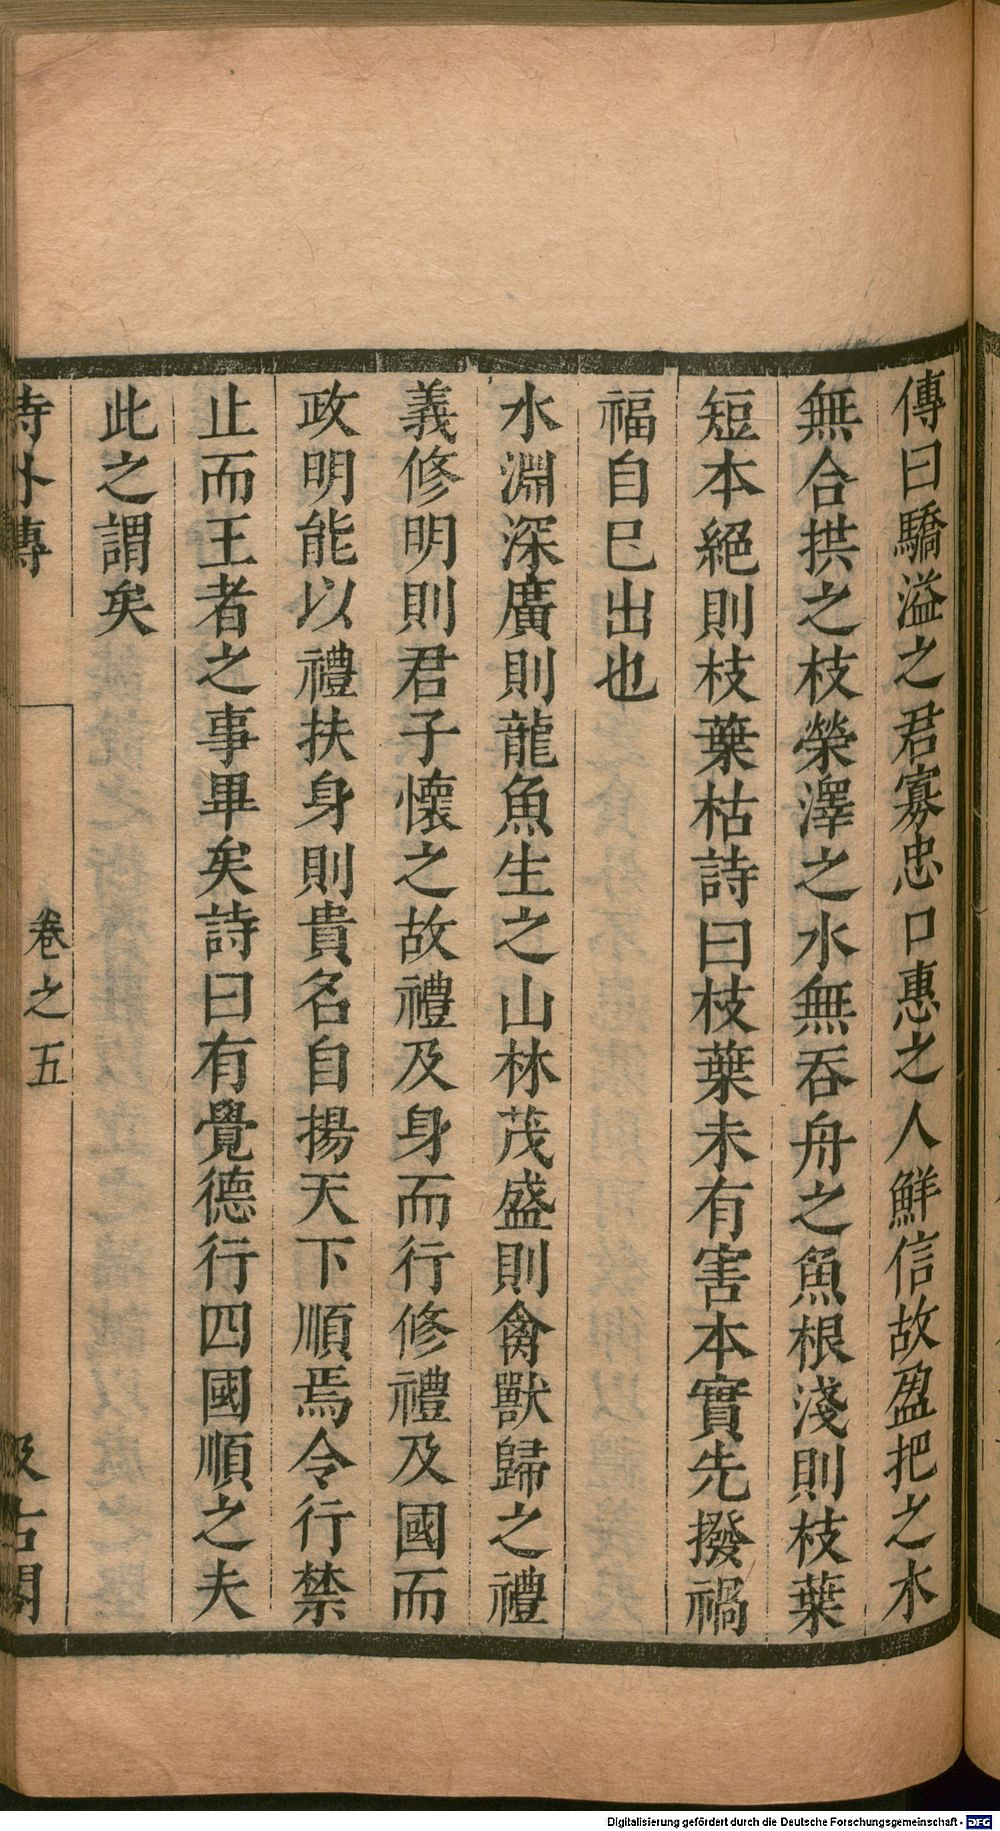 傳曰驕溢之君寡忠口惠之人鮮信故盈把之木
無合拱之枝榮澤之水無吞舟之魚根淺則枝葉
短本絕則枝葉枯詩曰枝葉未有害本實先撥禍
福自巳出也
水淵深廣則龍魚生之山林茂盛則禽獸歸之禮
義修明則君子懷之故禮及身而行修禮及國而
政明能以禮扶身則貴名自揚天下順焉令行禁
止而王者之事畢矣詩曰有覺德行四國順之夫
此之謂矣
詩外傳
卷之五
汲古閣
Digitalisierung gefördert durch die Deutsche Forschungsgemeinschaft - DFG